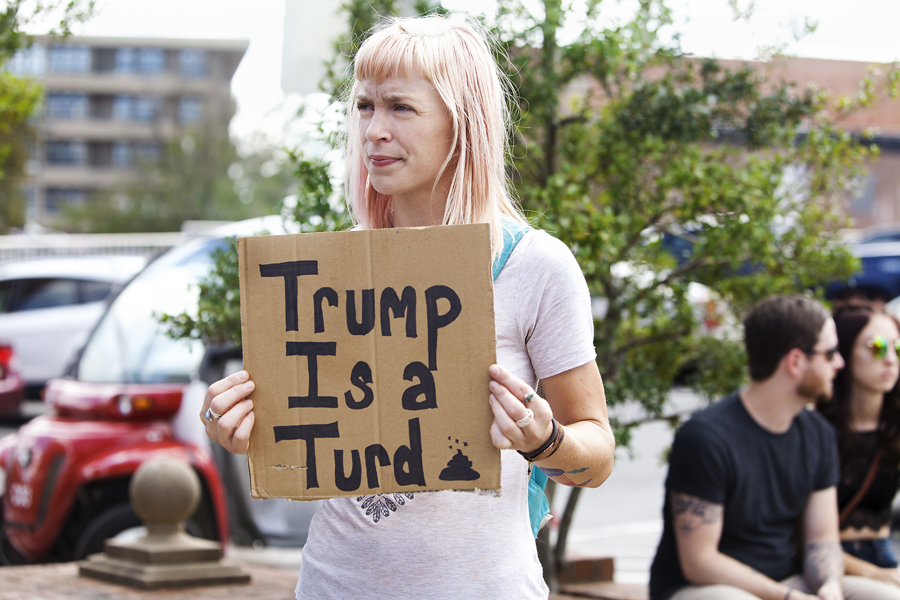 Trump
Is a
Turd